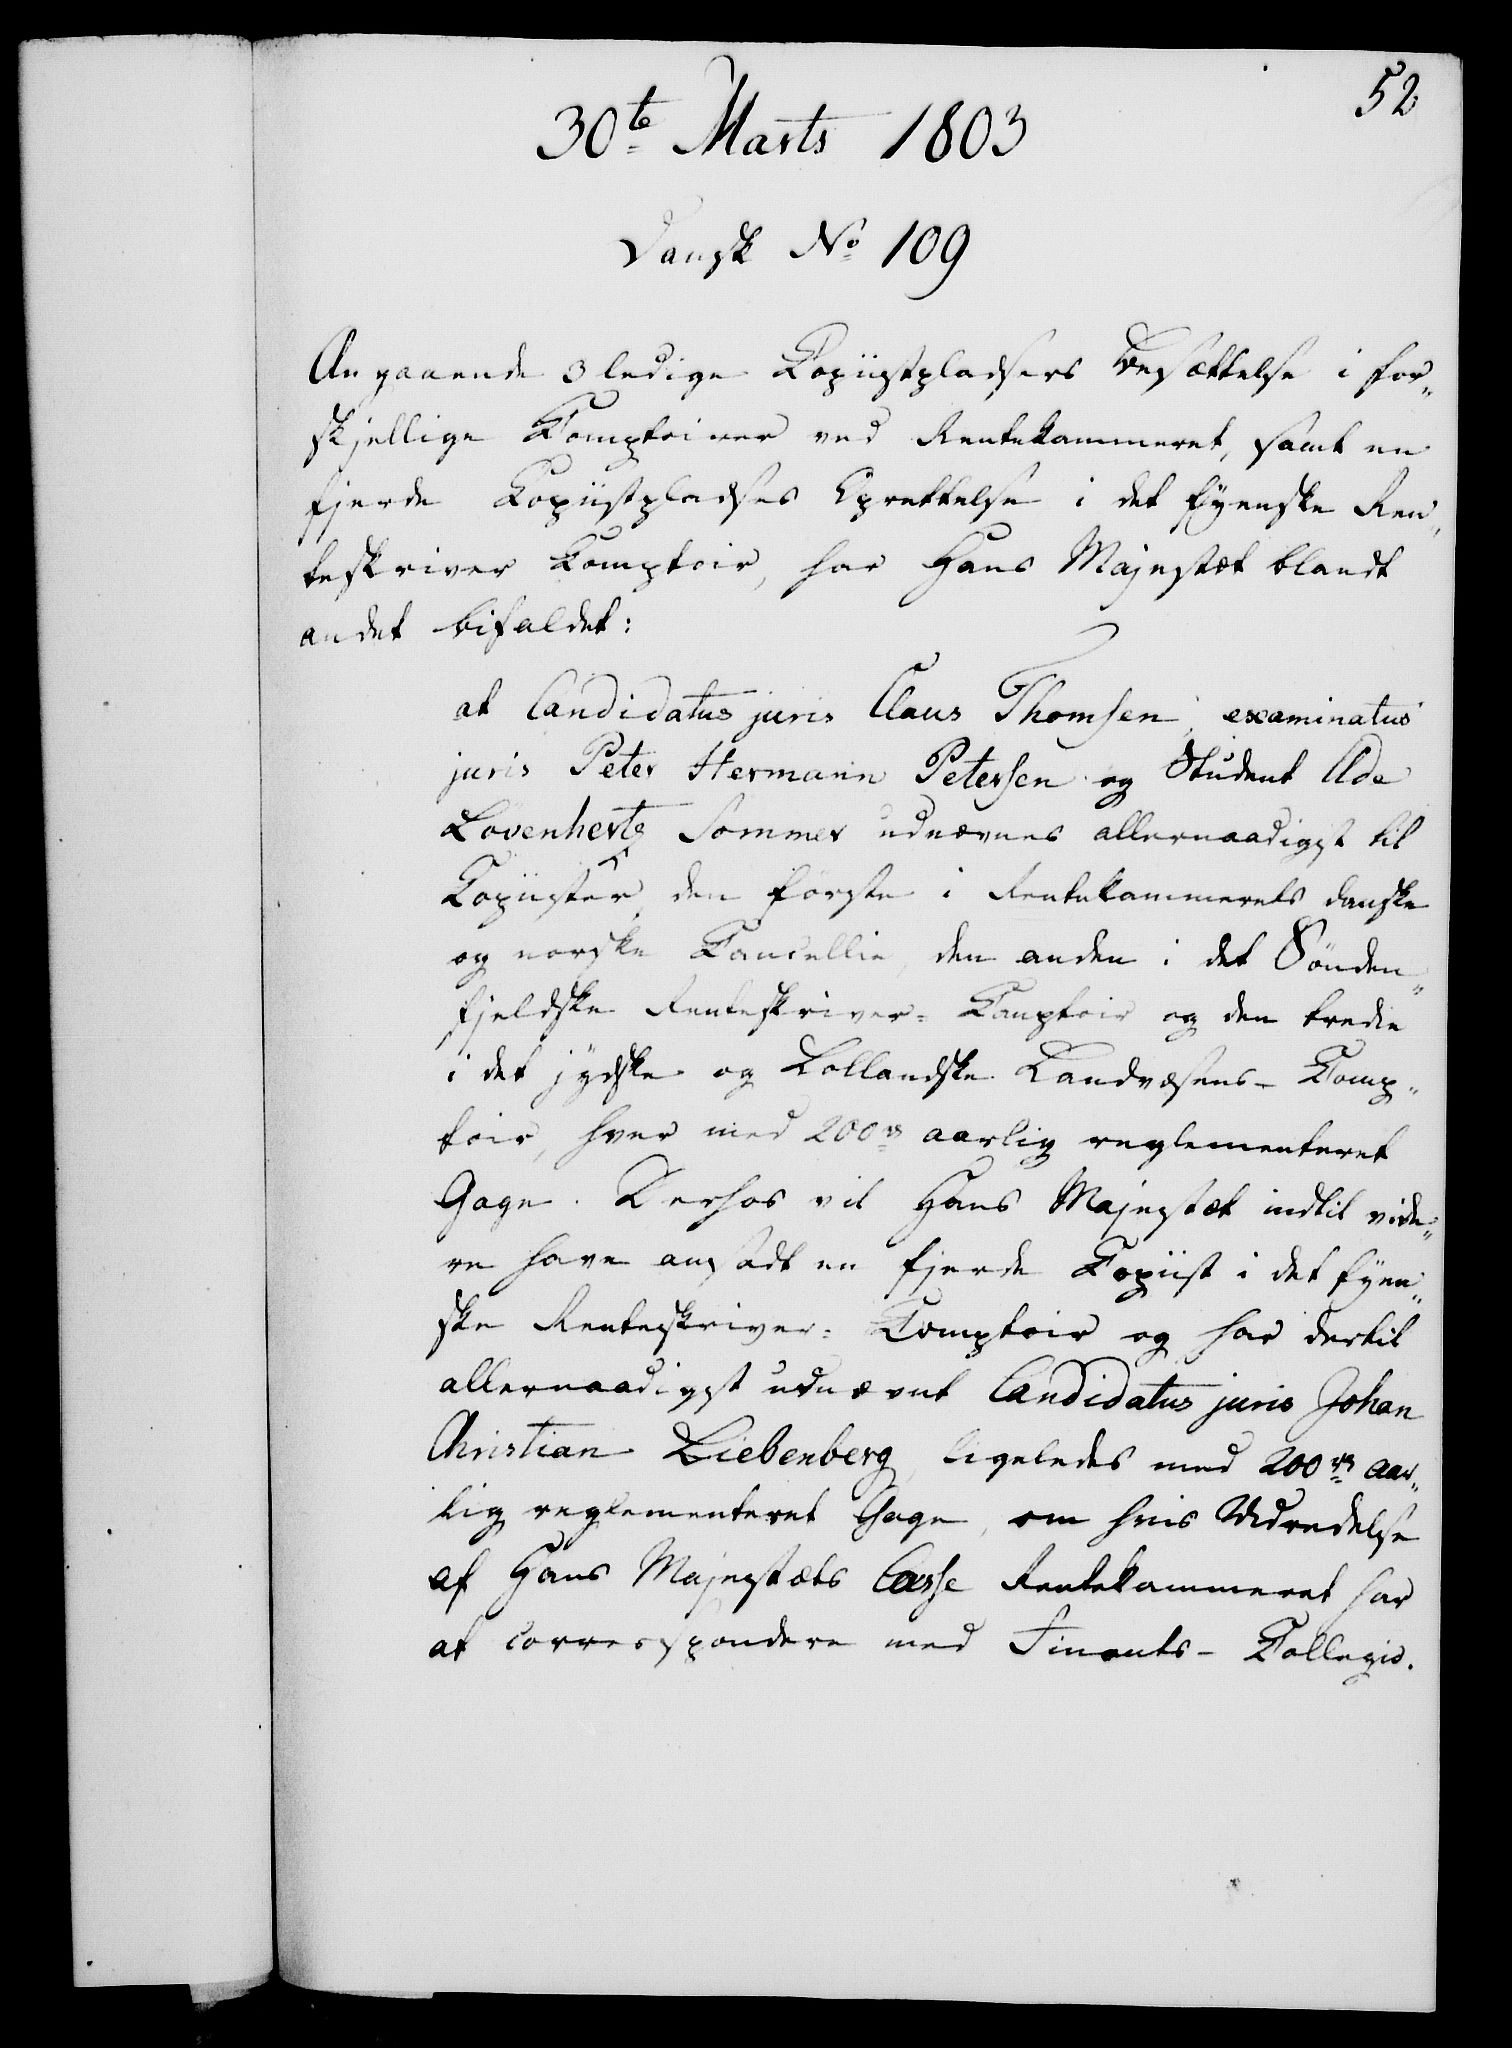 52
30te Marts 1803
Dansk No 109
Angaaende 3 ledige Kopiistpladsers Besættelse i for„
skjellige Comptoirer ved Rentekammeret, samt en
fjerde Kopiistpladses Oprettelse i det fyenske Ren„
teskriver Comptoir, har Hans Majestæt blandt
andet bifaldet:
at Candidatus juris Claus Thomsen, examinatus
juris Peter Hermann Petersen og Student Ude
Lövenhertz Sommer udnævnes allernaadigst til
Kopiister, den første i Rentekammerets danske
og norske Cancellie, den anden i det Sönden„
fjeldske Renteskriver= Comptoir og den tredie
i det jydske og Lollandske Landvæsens- Comp„
toir, hver med 200 rd aarlig reglementeret
Gage. Derhos vil Hans Majestæt indtil vide„
re have ansadt en fjerde Copiist i det fyen„
ske Renteskriver= Comptoir og har dertil
allernaadigst udnævnt Candidatus juris Johan
Christian Liebenberg, ligeledes med 200 rd aar„
lig reglementeret Gage, om hvis Udredelse
af Hans Majestæts Casse Rentekammeret har
at correspondere med Finants- Collegio.